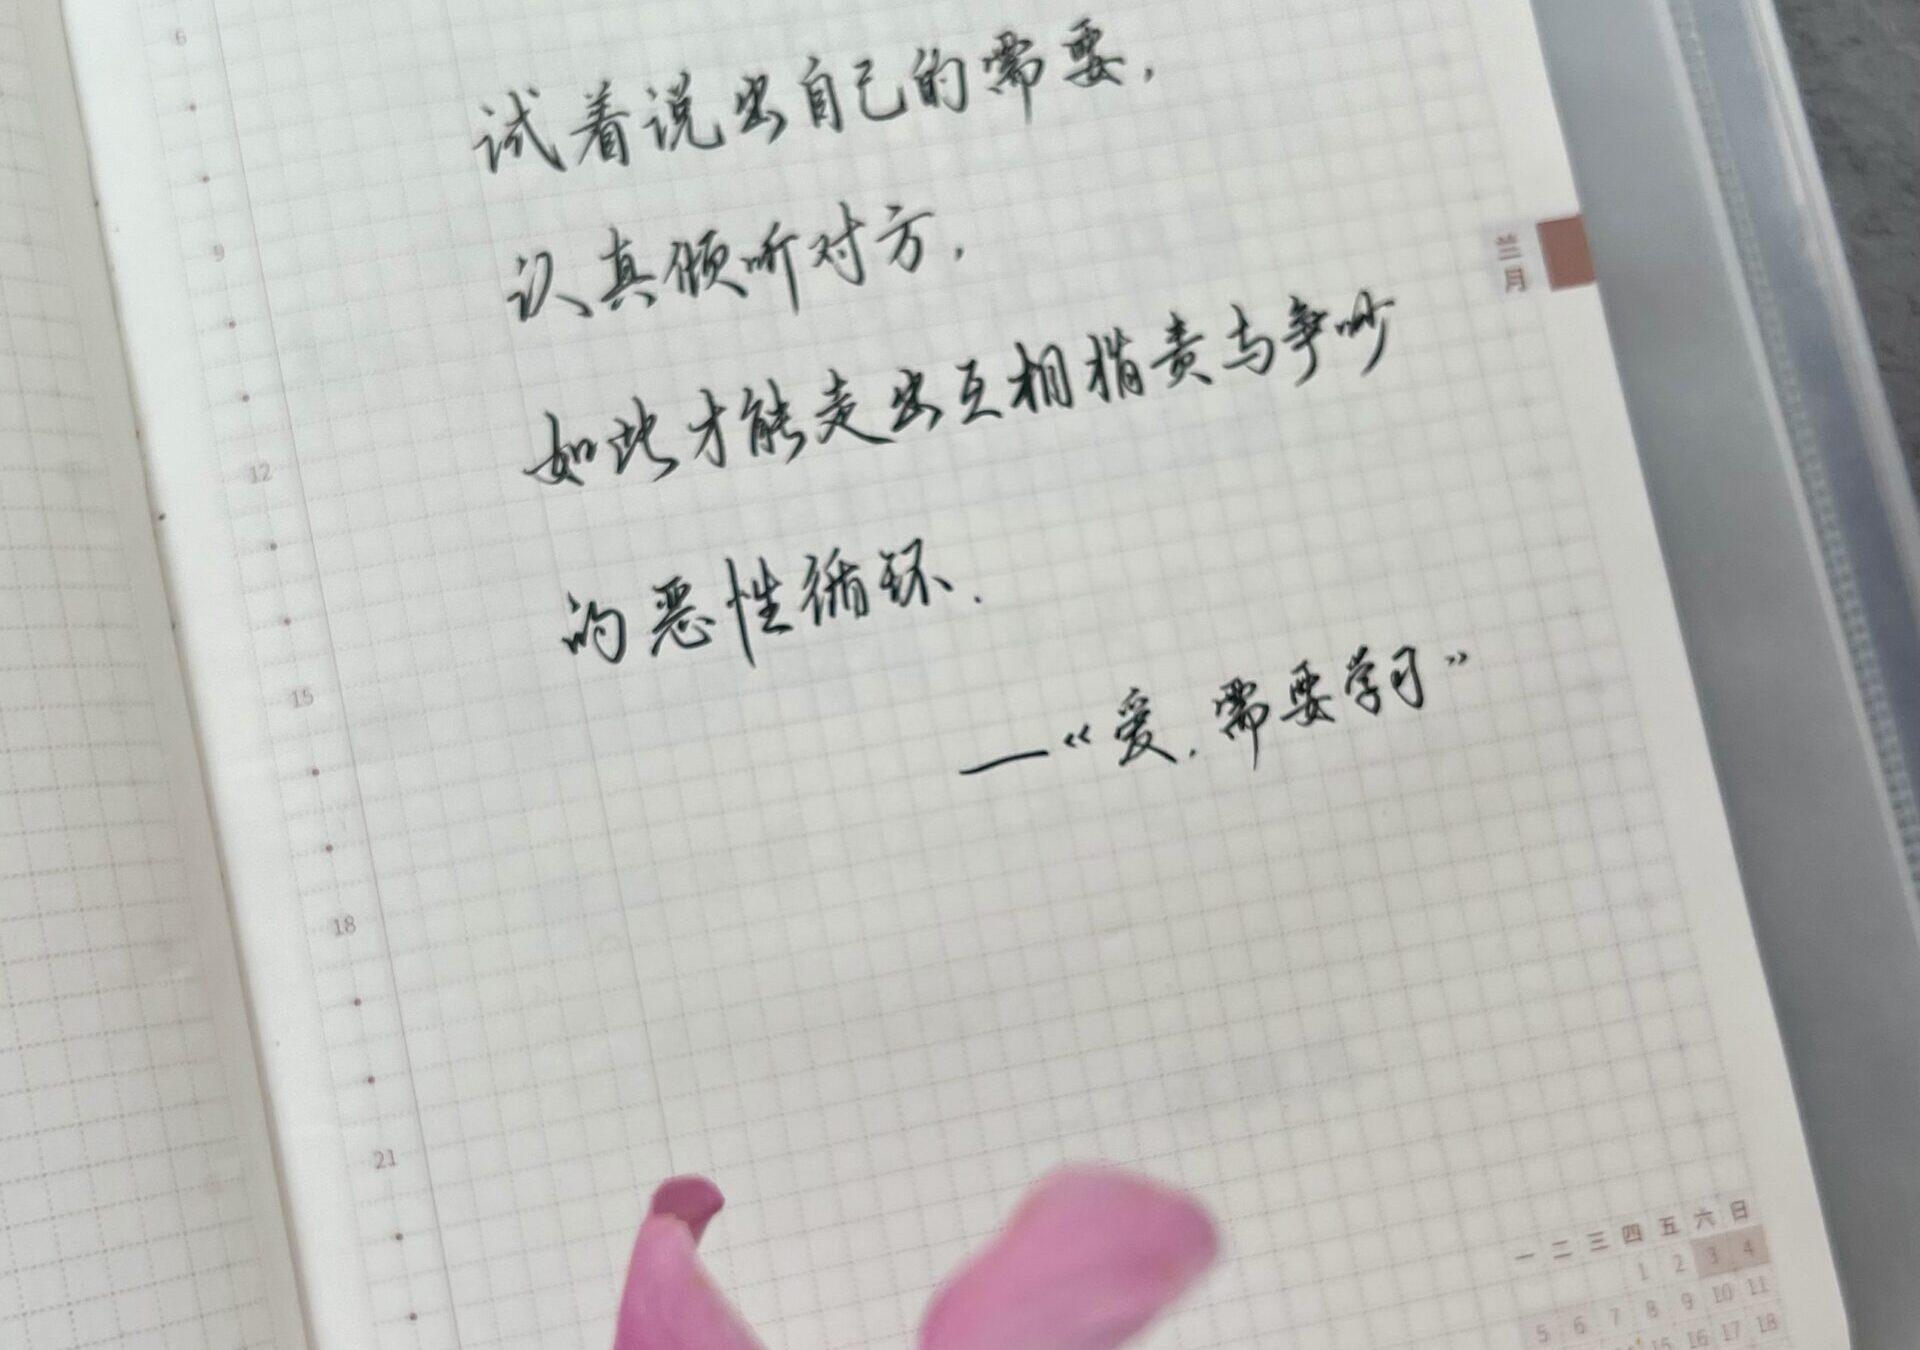 6
试着说出自己的需要,
9
认真倾听对方,
兰月
如此才能走出互相指责与争吵
12
的恶性循环.
15
—“爱,需要学习”
18
21
一 二 三 四 五 六 日
1 2 3 4
5 6 7 8 9 10 11
15 16 17 18